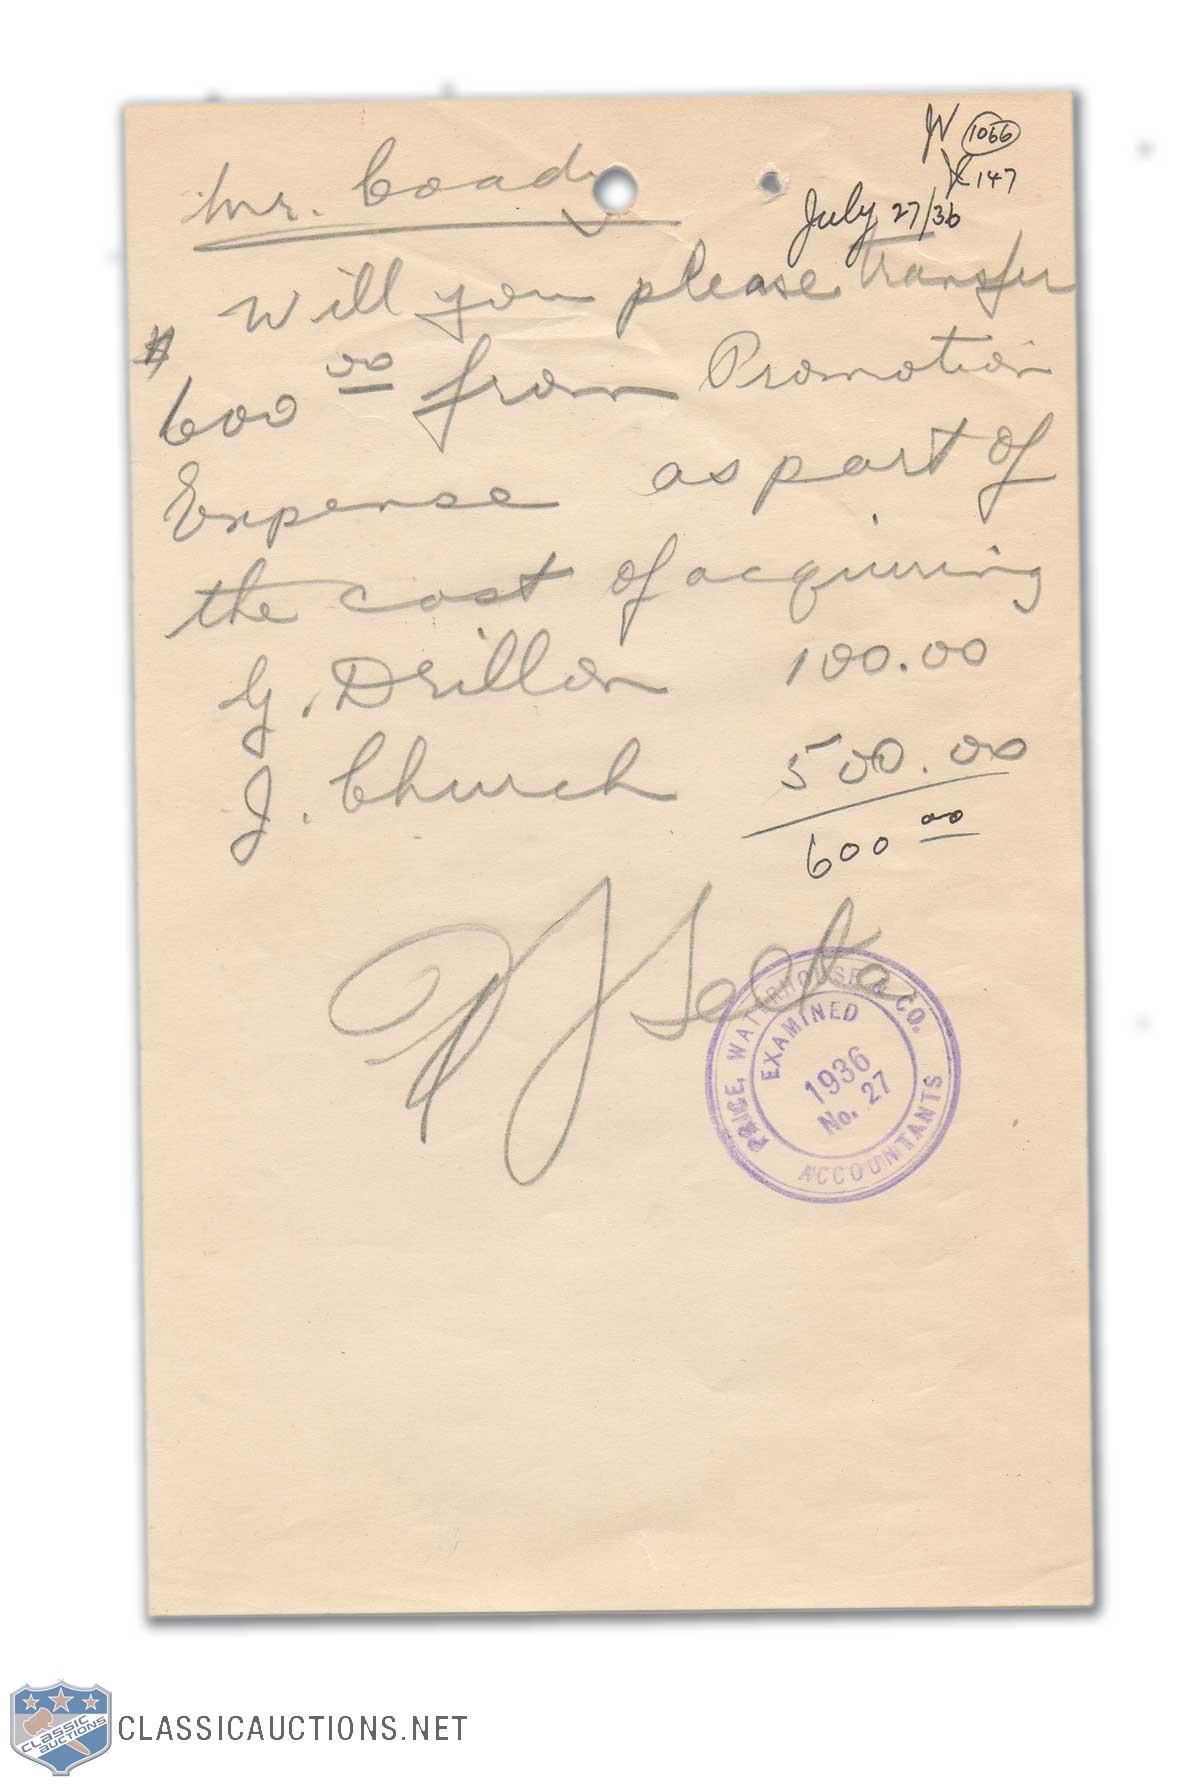 1066
147
July 27/36
Mr. Coady
Will you please transfer
$
600 00 from Promotion
Expense as part of
the cost of acquiring
G. Drillon 100.00
J. Church 500.00
600 00
PRICE, WATERHOUSE & CO.
EXAMINED
1936
No. 27
ACCOUNTANTS
CLASSIC
AUCTIONS
CLASSICAUCTIONS.NET